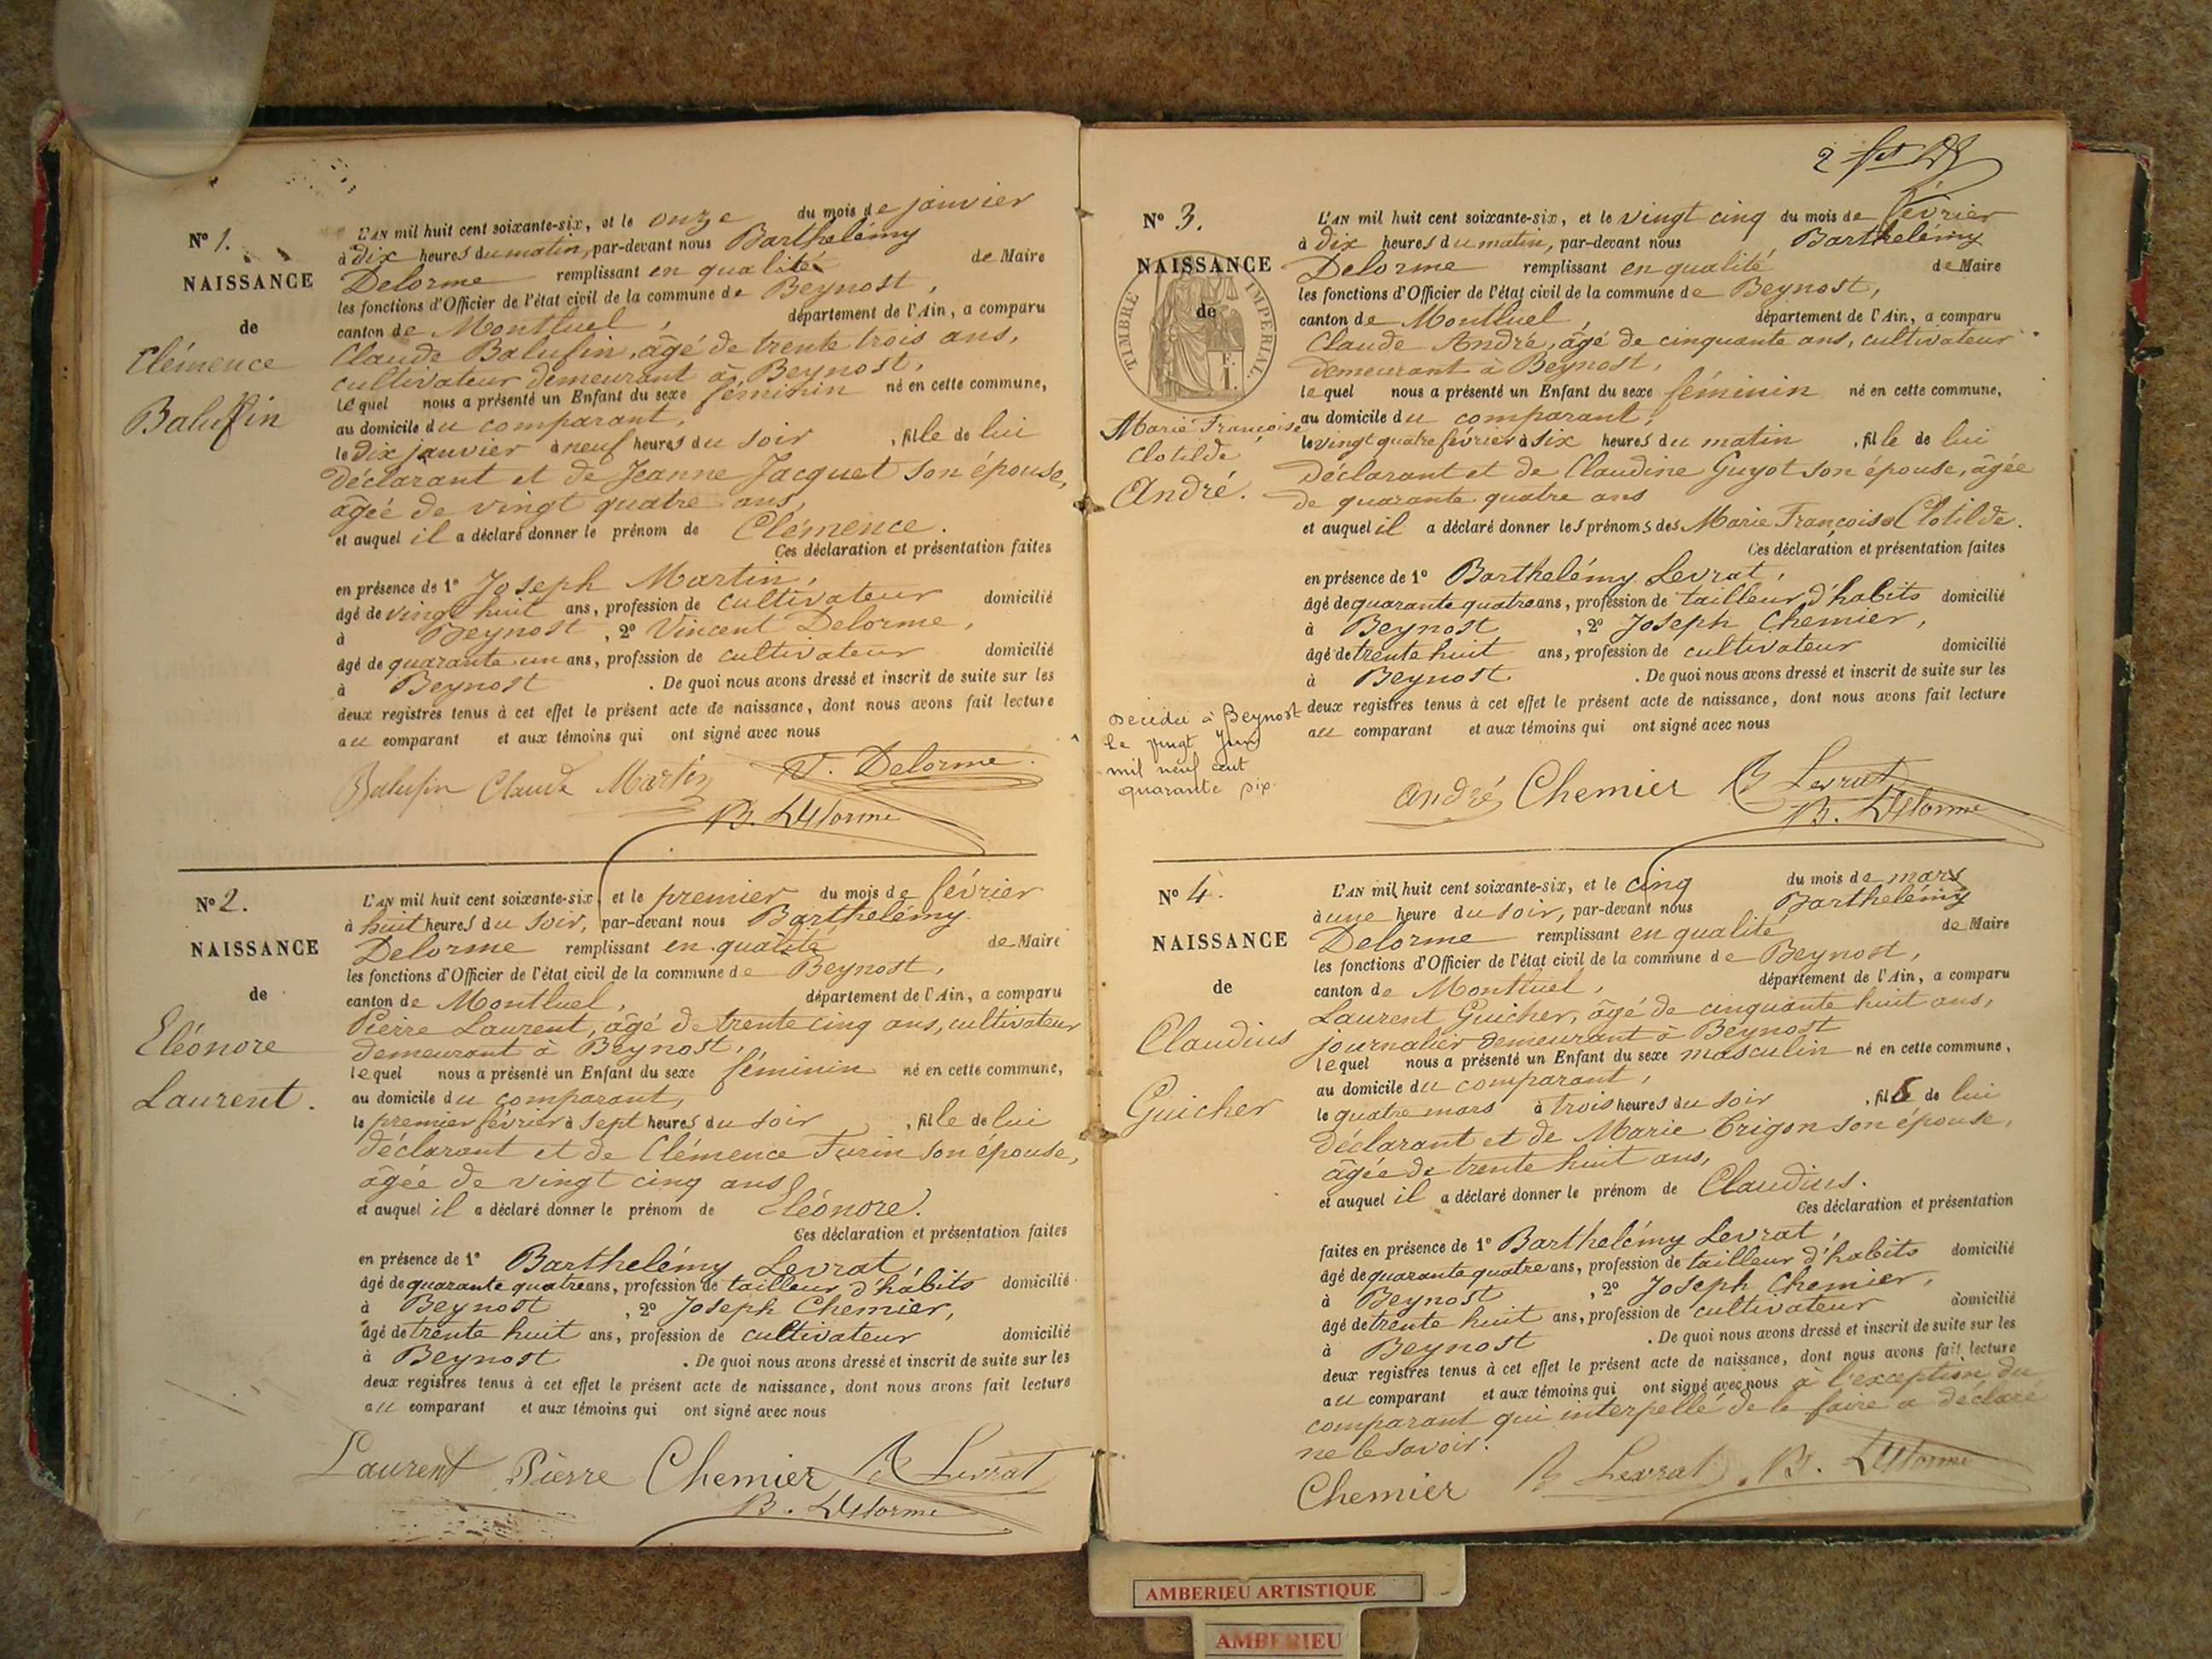 N° 1.
NAISSANCE
de
Clémence
Balufin
L'AN mil huit cent soixante-six, et le onze du mois de janvier
à dix heures du matin, par-devant nous Barthelémy
Delorme remplissant en qualité de Maire
les fonctions d'Officier de l'état civil de la commune de Beynost,
canton de Montluel, département de l'Ain, a comparu
Claude Balufin, âgé de trente trois ans,
cultivateur demeurant à Beynost,
lequel nous a présenté un Enfant du sexe féminin né en cette commune,
au domicile du comparant,
le dix janvier à neuf heures du soir, fille de lui
déclarant et de Jeanne Jacquet son épouse,
âgée de vingt quatre ans,
et auquel il a déclaré donner le prénom de Clémence.
Ces déclaration et présentation faites
en présence de 1° Joseph Martin,
âgé de vingt huit ans, profession de cultivateur domicilié
à Beynost, 2° Vincent Delorme,
âgé de quarante un ans, profession de cultivateur domicilié
à Beynost. De quoi nous avons dressé et inscrit de suite sur les
deux registres tenus à cet effet le présent acte de naissance, dont nous avons fait lecture
au comparant et aux témoins qui ont signé avec nous
Balufin Claude Martin V. Delorme
B. Delorme
N° 2.
NAISSANCE
de
Eléonore
Laurent.
L'AN mil huit cent soixante-six, et le premier du mois de février
à huit heures du soir, par-devant nous Barthelémy
Delorme remplissant en qualité de Maire
les fonctions d'Officier de l'état civil de la commune de Beynost,
canton de Montluel, département de l'Ain, a comparu
Pierre Laurent, âgé de trente cinq ans, cultivateur
demeurant à Beynost,
lequel nous a présenté un Enfant du sexe féminin né en cette commune,
au domicile du comparant,
le premier février à sept heures du soir, fille de lui
déclarant et de Clémence Turin son épouse,
âgée de vingt cinq ans
et auquel il a déclaré donner le prénom de Eléonore.
Ces déclaration et présentation faites
en présence de 1° Barthelémy Levrat,
âgé de quarante quatre ans, profession de tailleur d'habits domicilié
à Beynost, 2° Joseph Chemier,
âgé de trente huit ans, profession de cultivateur domicilié
à Beynost. De quoi nous avons dressé et inscrit de suite sur les
deux registres tenus à cet effet le présent acte de naissance, dont nous avons fait lecture
au comparant et aux témoins qui ont signé avec nous
Laurent Pierre Chemier B Levrat
B. Delorme
2
N° 3.
NAISSANCE
de
TIMBRE IMPERIAL.
F.
1.
Marie Françoise
Clotilde
André.
L'AN mil huit cent soixante-six, et le vingt cinq du mois de février
à dix heures du matin, par-devant nous Barthelémy
Delorme remplissant en qualité de Maire
les fonctions d'Officier de l'état civil de la commune de Beynost,
canton de Montluel, département de l'Ain, a comparu
Claude André, âgé de cinquante ans, cultivateur
demeurant à Beynost,
lequel nous a présenté un Enfant du sexe féminin né en cette commune,
au domicile du comparant,
le vingt quatre février à six heures du matin, fille de lui
déclarant et de Claudine Guyot son épouse, âgée
de quarante quatre ans
et auquel il a déclaré donner les prénoms des Marie Françoise Clotilde.
Ces déclaration et présentation faites
en présence de 1° Barthelémy Levrat,
âgé de quarante quatre ans, profession de tailleur d'habits domicilié
à Beynost, 2° Joseph Chemier,
âgé de trente huit ans, profession de cultivateur domicilié
à Beynost. De quoi nous avons dressé et inscrit de suite sur les
deux registres tenus à cet effet le présent acte de naissance, dont nous avons fait lecture
au comparant et aux témoins qui ont signé avec nous
Décédée à Beynost
le vingt juin
mil neuf cent
quarante six.
André Chemier B Levrat
B. Delorme
N° 4.
NAISSANCE
de
Claudius
Guicher
L'AN mil huit cent soixante-six, et le cinq du mois de mars
à une heure du soir, par-devant nous Barthelémy
Delorme remplissant en qualité de Maire
les fonctions d'Officier de l'état civil de la commune de Beynost,
canton de Montluel, département de l'Ain, a comparu
Laurent Guicher, âgé de cinquante huit ans,
journalier demeurant à Beynost
lequel nous a présenté un Enfant du sexe masculin né en cette commune,
au domicile du comparant,
le quatre mars à trois heures du soir, fils de lui
déclarant et de Marie Crigon son épouse,
âgée de trente huit ans,
et auquel il a déclaré donner le prénom de Claudius.
Ces déclaration et présentation
faites en présence de 1° Barthelémy Levrat,
âgé de quarante quatre ans, profession de tailleur d'habits domicilié
à Beynost, 2° Joseph Chemier,
âgé de trente huit ans, profession de cultivateur domicilié
à Beynost. De quoi nous avons dressé et inscrit de suite sur les
deux registres tenus à cet effet le présent acte de naissance, dont nous avons fait lecture
au comparant et aux témoins qui ont signé avec nous à l'exception du
comparant qui interpellé de le faire a déclaré
ne le savoir.
Chemier B Levrat B. Delorme
AMBERIEU ARTISTIQUE
AMBERIEU